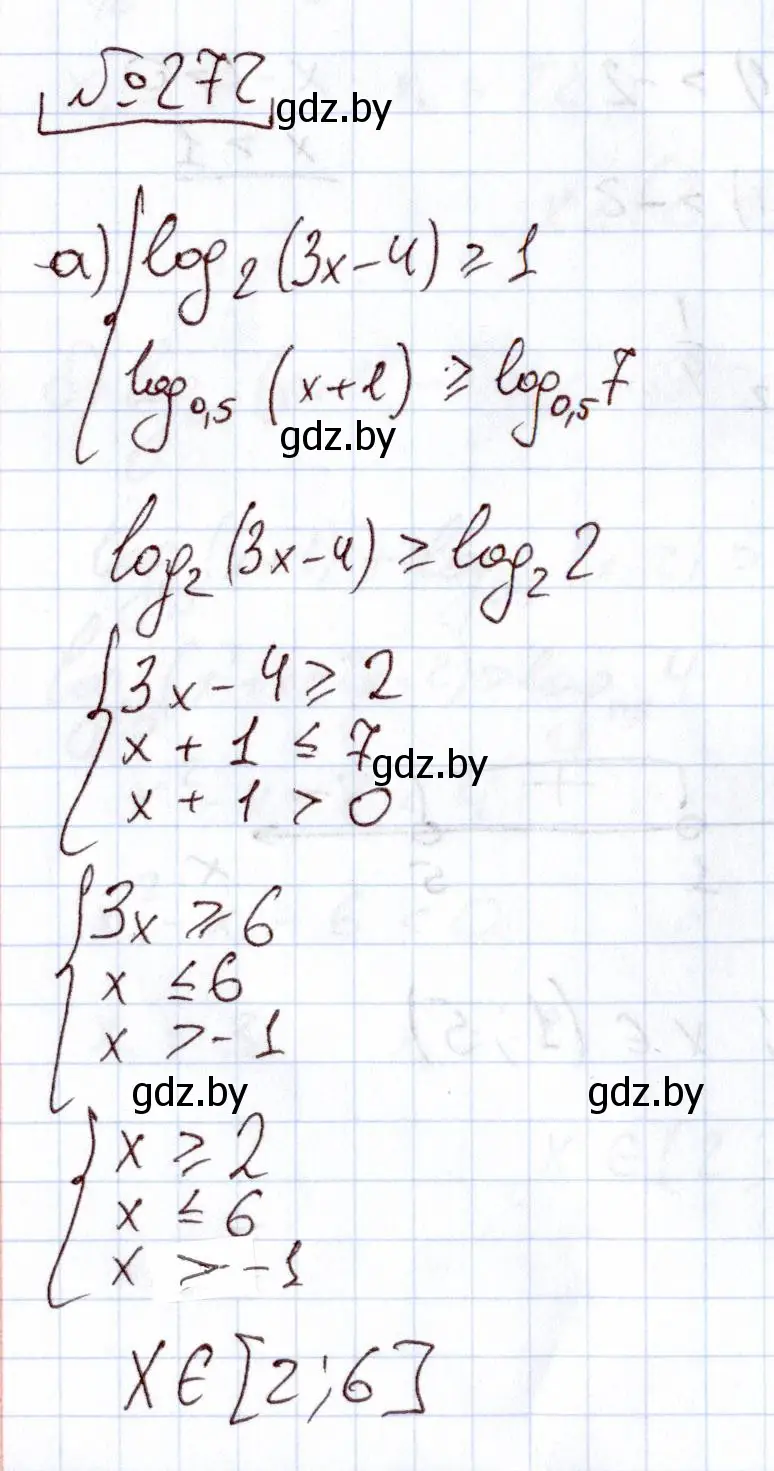 №272
gdz.by
а) log₂(3x-4) ≥ 1
log₀,₅ (x+1) ≥ log₀,₅7
gdz.by
log₂(3x-4) ≥ log₂2
3x-4 ≥ 2
x + 1 ≤ 7
gdz.by
x + 1 > 0
3x ≥ 6
x ≤ 6
x > -1
gdz.by gdz.by
x ≥ 2
x ≤ 6
x > -1
x ∈ [2;6]